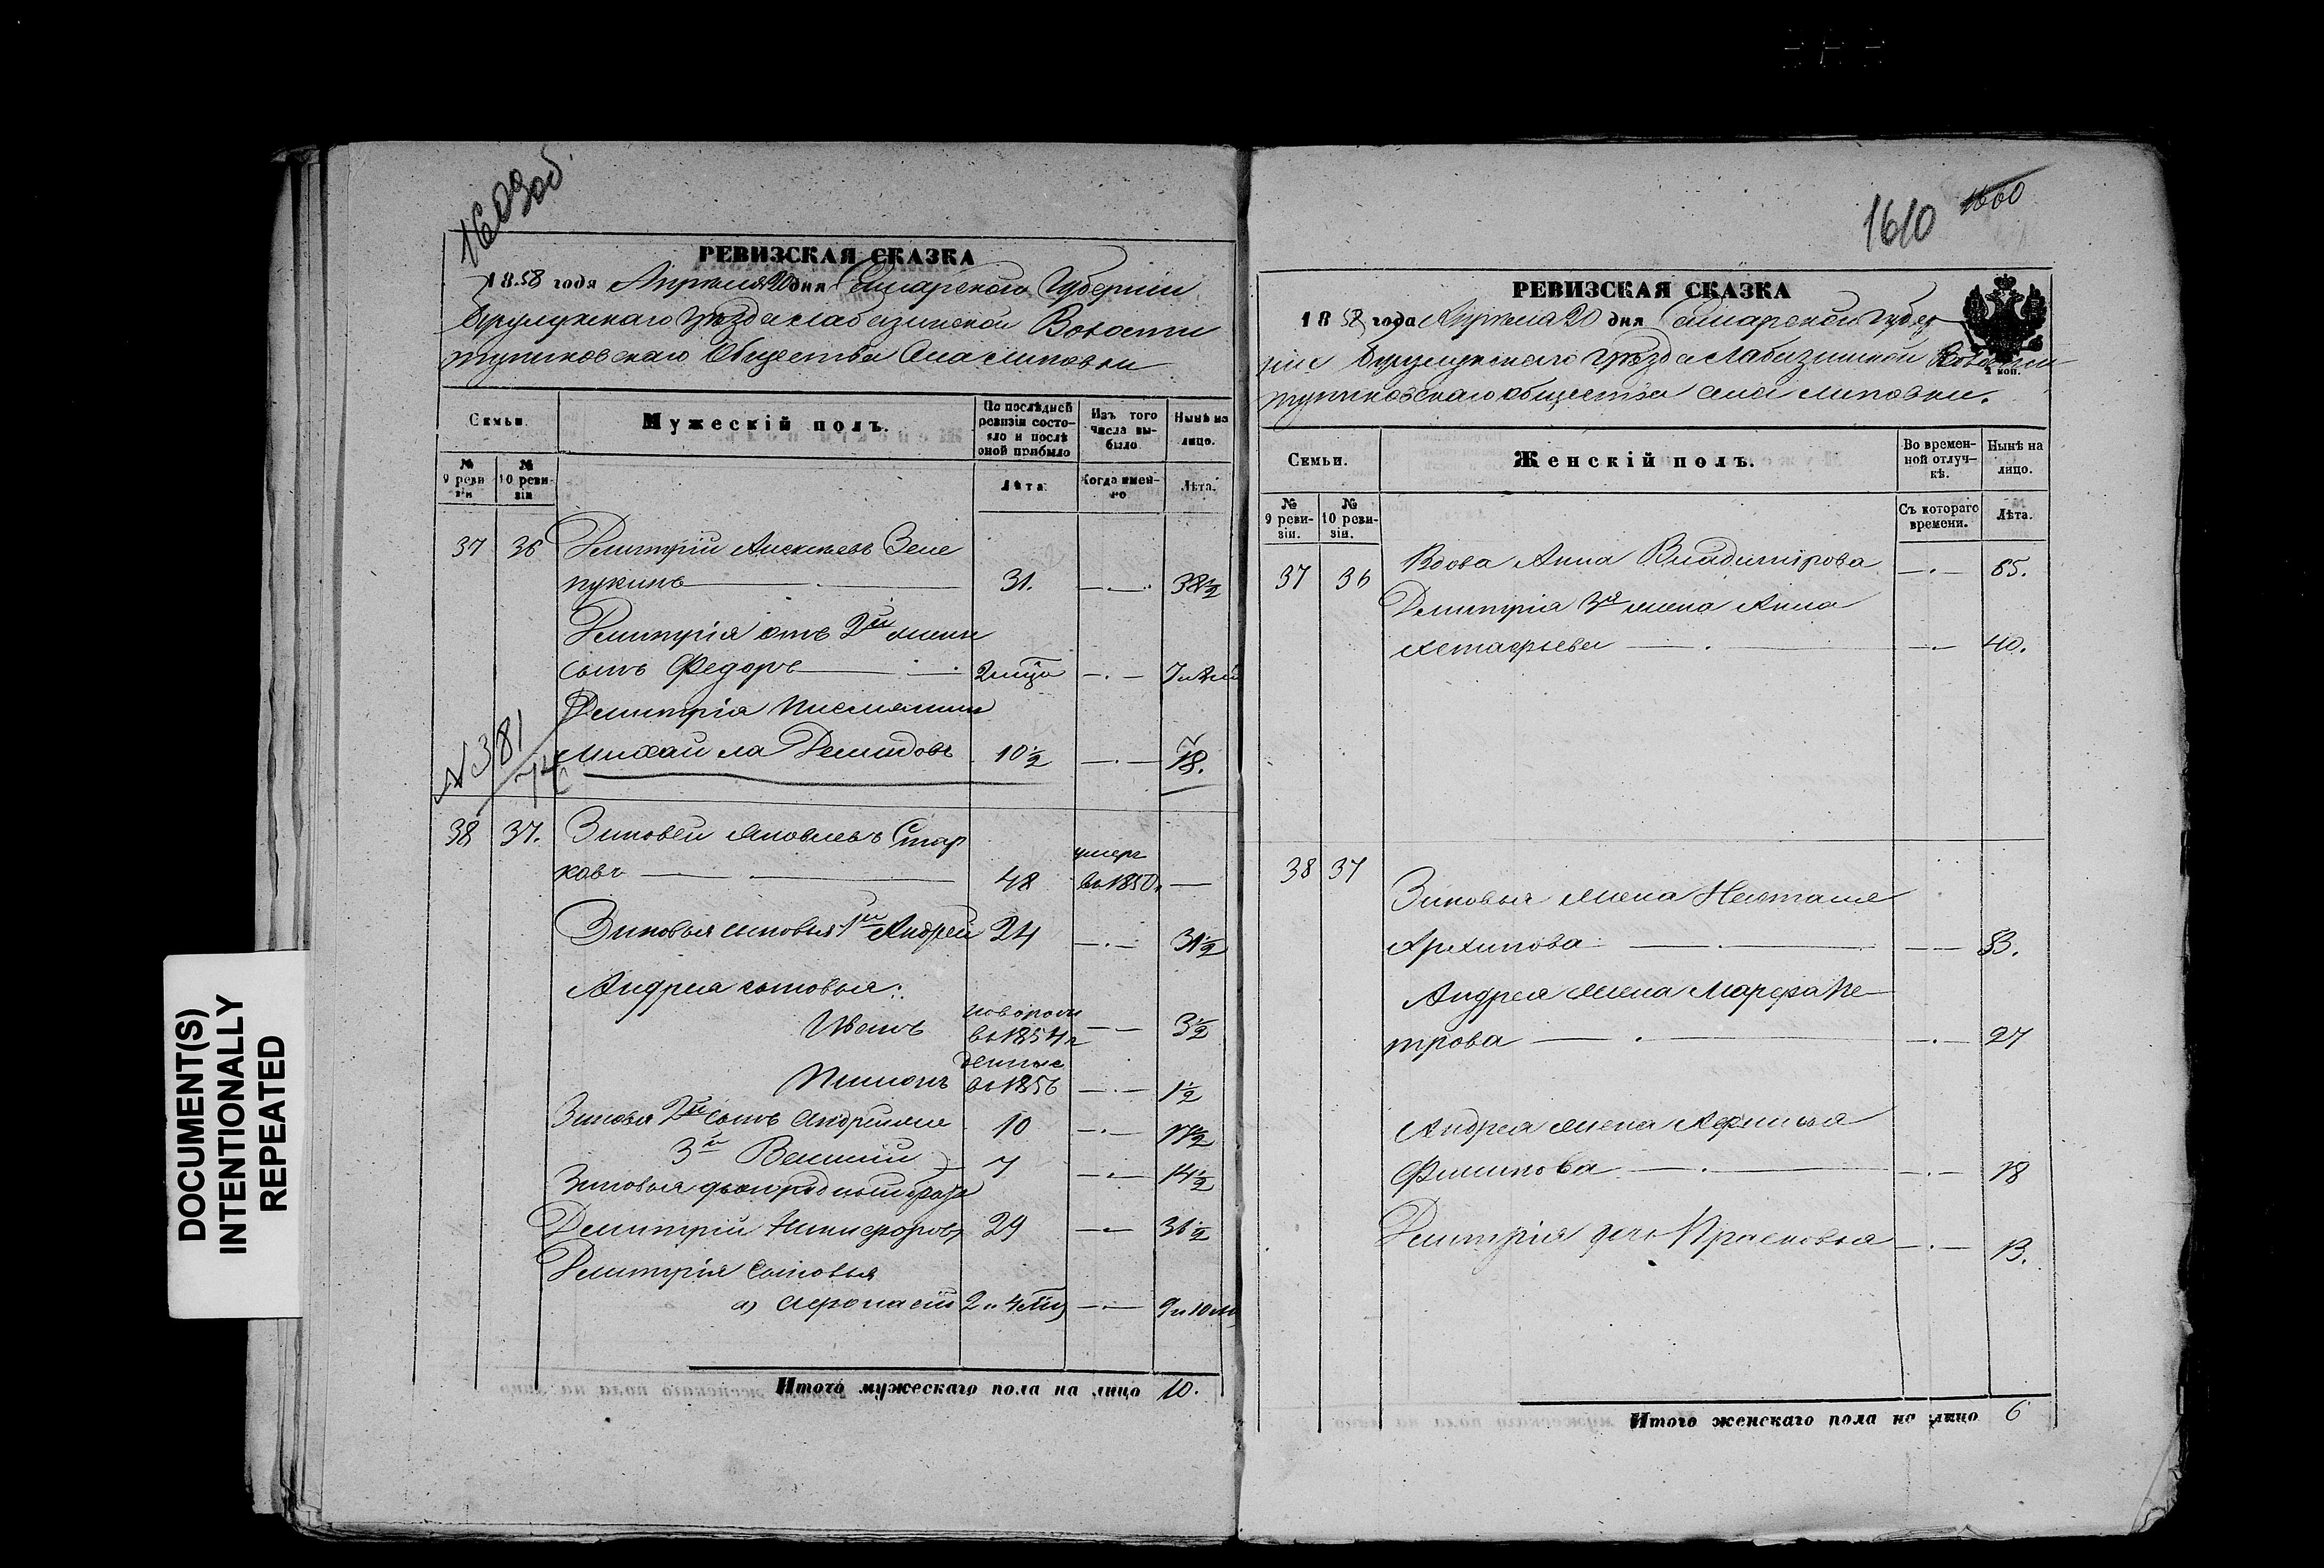 1609 об.
РЕВИЗСКАЯ СКАЗКА
1858 года Апреля 20 дня Самарской Губернии
Бузулукскаго Уезда Лабазинской Волости
Общества Села Липовки
Семьи.
Мужескій полъ.
По послѣдней ревизіи состояло и послѣ оной прибыло
Изъ того числа выбыло
Нынѣ на лицо.
№ 9 ревизіи
№ 10 ревизіи
Лѣта
Когда именно
Лѣта.
37 36 Дмитрій Алексеевъ Зеле
пукинъ 31. 38½
Дмитрія отъ 2й жены
сынъ Федоръ
Дмитрія
Михаила Демидовъ 10½ 18.
№ 381
38 37. Зиновей Яковлевъ Стар
ковъ 48 умеръ въ 1850. —
Зиновья сыновья 1й Андрей 24 31½
Андрея сыновья:
Иванъ новорож въ 1854 3½
Пименъ денные въ 1856 1½
Зиновья 2й сынъ 10 17½
3й Василий 7 14½
Зиновья двоюродный братъ
Дмитрий Никифоровъ 29 36½
Дмитрія сыновья
а) 2 и 4 9 и 10
Итого мужескаго пола на лицо 10.
DOCUMENT(S)
INTENTIONALLY
REPEATED
1610 1660
РЕВИЗСКАЯ СКАЗКА
1858 года Апреля 20 дня Самарской Губер
ніи Бузулукскаго Уезда Лабазинской Волости
общества села Липовки.
Семьи.
Женскій полъ.
Во временной отлучкѣ.
Нынѣ на лицо.
№ 9 ревизіи.
№ 10 ревизіи.
Съ котораго времени.
Лѣта.
37 36 Вдова Анна Владимірова 65.
Дмитрія 3я жена Анна
Астафьева 40.
38 37
Зиновья жена Наталья
Архипова 53.
Андрея жена Марфа Пе
трова 27
Андрея жена Афимья
Филипова 18
Дмитрія дочь Прасковья 13.
Итого женскаго пола на лицо 6